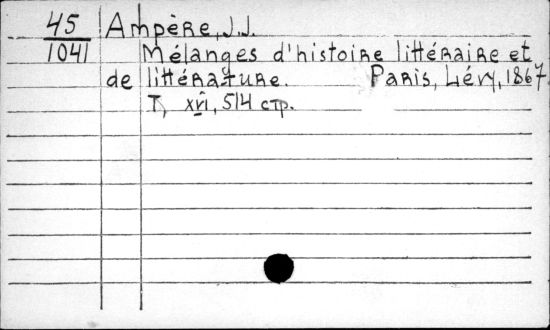 45 Ampère, J.J.
1041 Mélanges d'histoire littéraire et
de littérature. Paris, Lévy, 1867.
T, xvi, 514 стр.